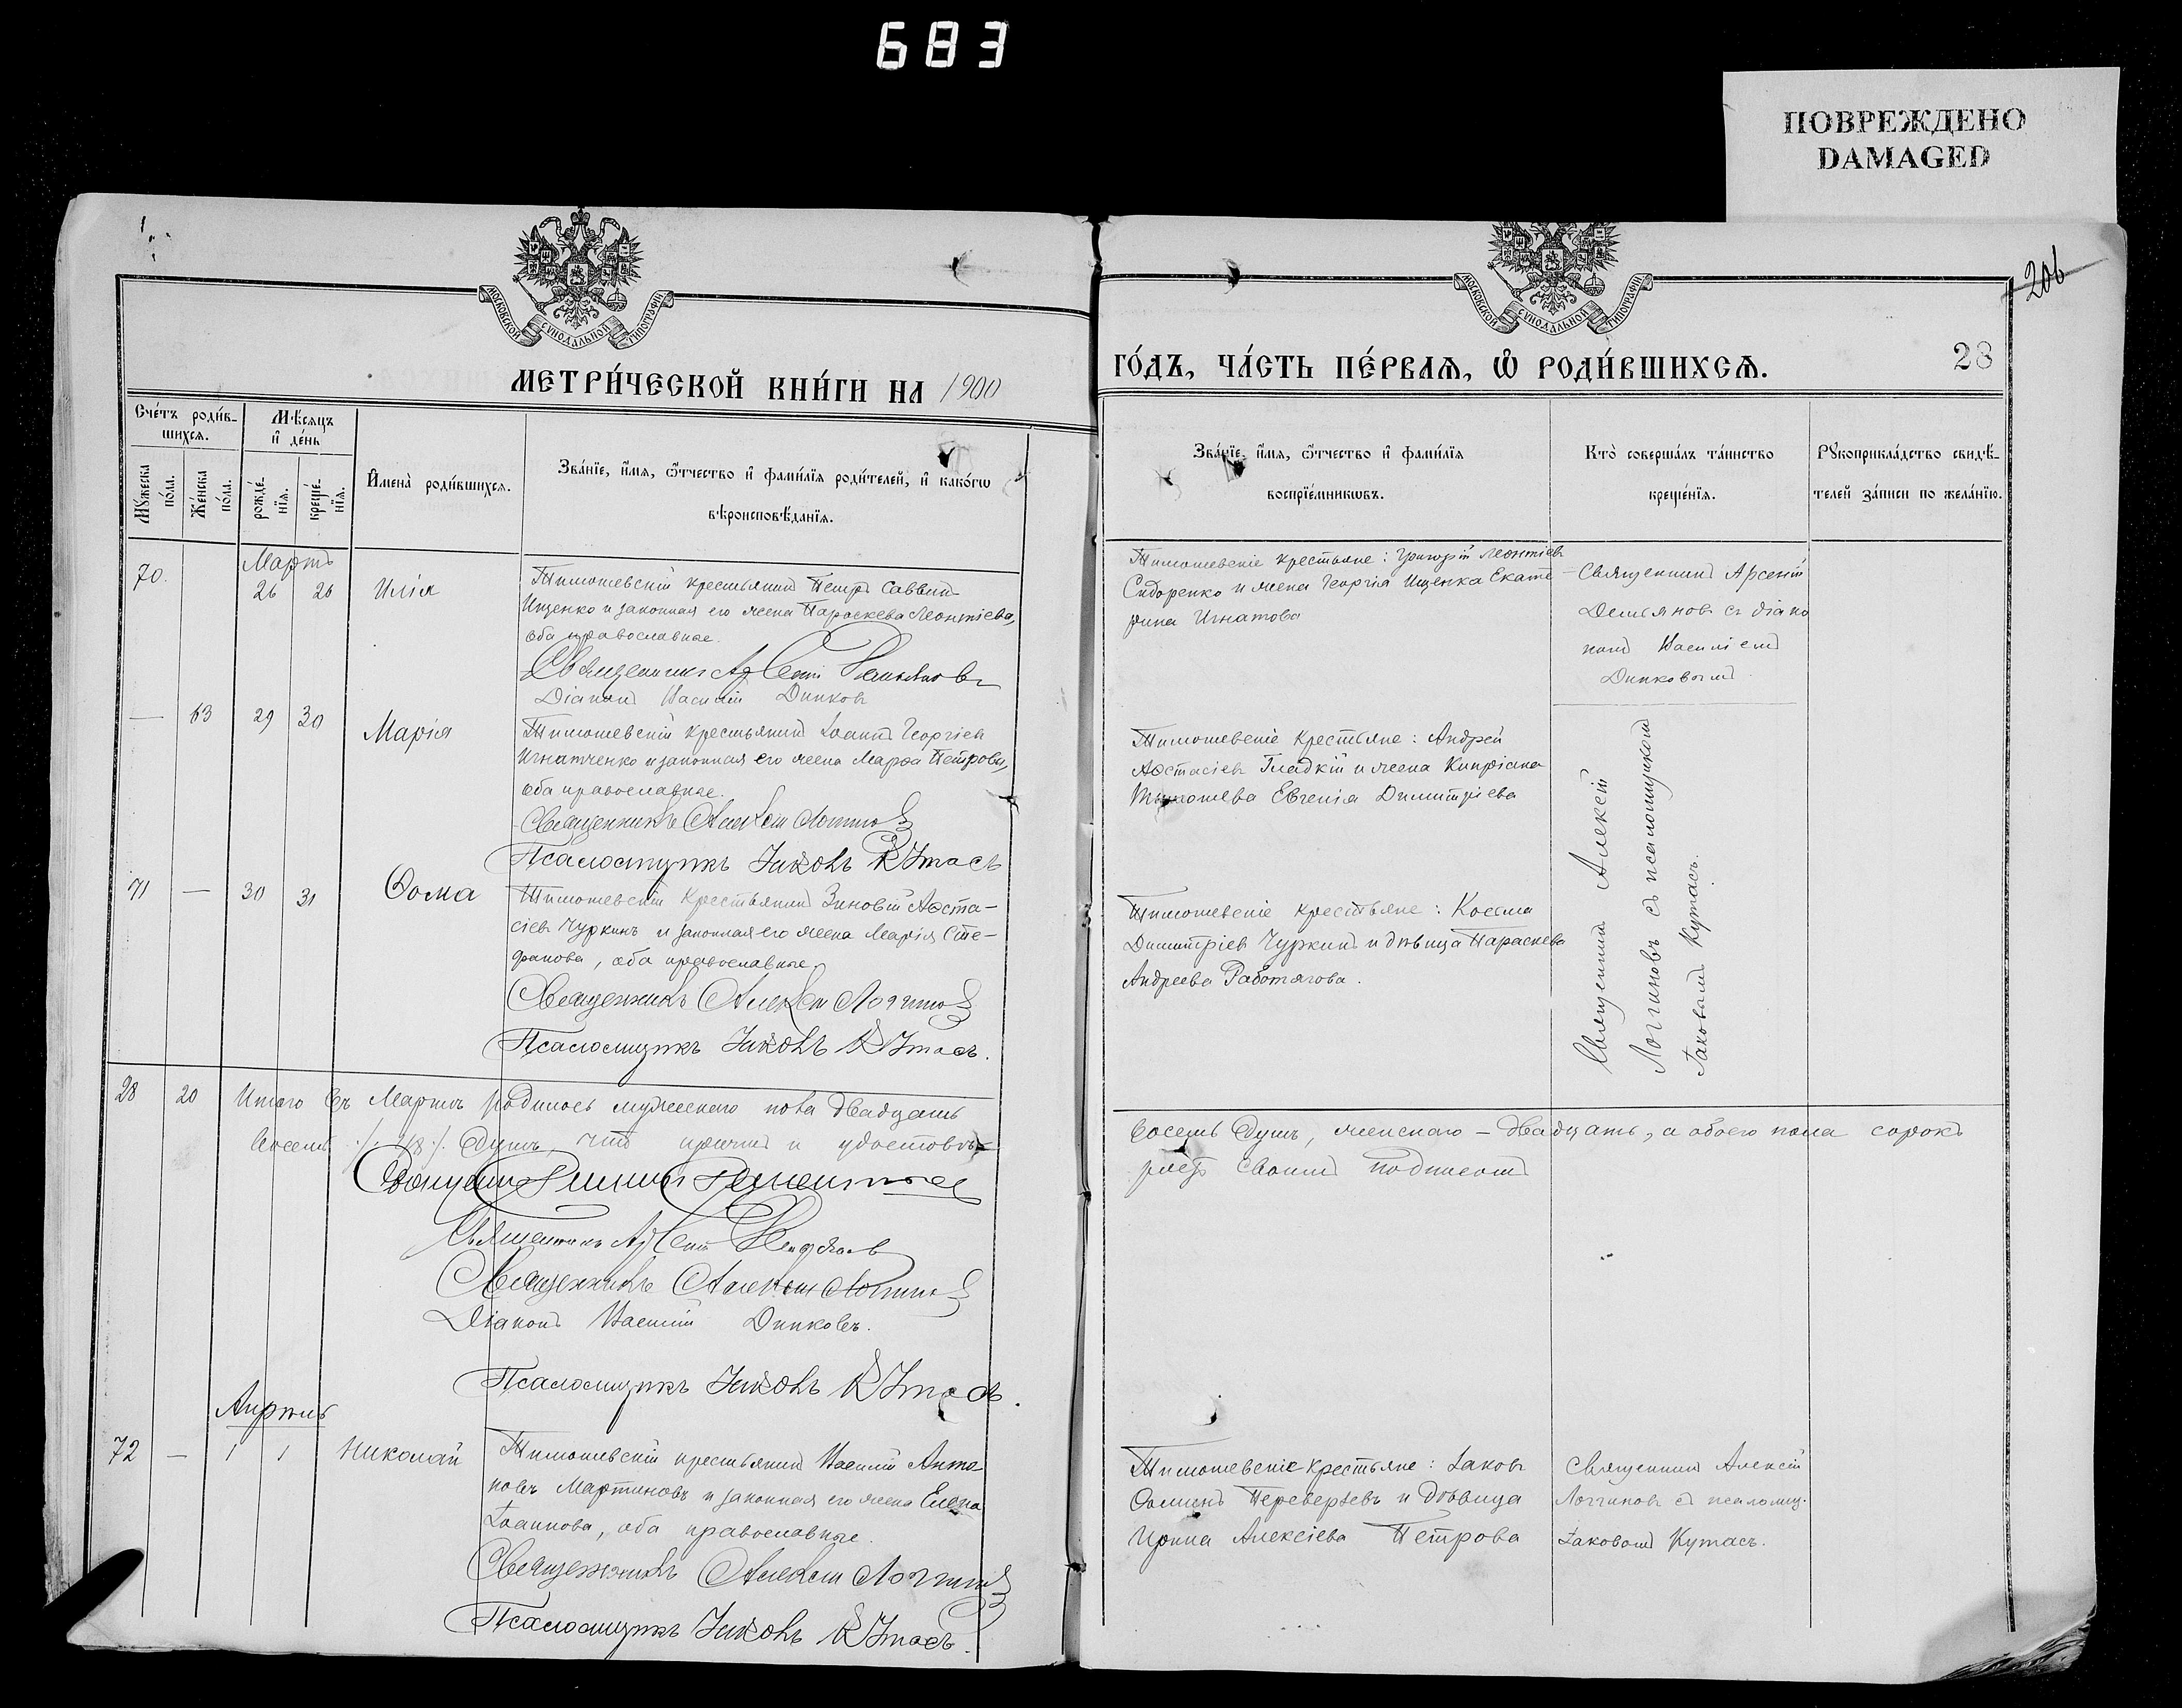 683
ПОВРЕЖДЕНО
DAMAGED
206
МОСКОВСКОЙ СѴНОДАЛЬНОЙ ТИПОГРАФІИ
МОСКОВСКОЙ СѴНОДАЛЬНОЙ ТИПОГРАФІИ
МЕТРИ́ЧЕСКОЙ КНИ́ГИ НА 1900
ГО́ДЪ, ЧА́СТЬ ПЕ́РВАѦ, Ѡ РОДИ́ВШИХСѦ.
28
Сче́тъ роди́в-
шихсѧ.
Мѣсяцъ
и де́нь
Мꙋ́жеска
по́ла.
Же́нска
по́ла.
рожде́-
нїѧ.
креще́-
нїѧ.
Имена̀ роди́вшихсѧ.
Зва́нїе, и́мѧ, ѻ҆́тчество и фами́лїѧ роди́телей, и како́гѡ
вѣроисповѣ́данїѧ.
Зва́нїе, и́мѧ, ѻ҆́тчество и фами́лїѧ
воспрїе́мникѡвъ.
Кто̀ соверша́лъ та́инство
креще́нїѧ.
Рꙋкоприкла́дство свидѣ́-
телей за́писи по жела́нїю.
Мартъ
70. 26 26 Илія
Тимошевскій крестьянинъ Петръ Саввинъ
Ищенко и законная его жена Параскева Леонтіева,
оба православные.
Священникъ Арсеній Демьяновъ
Діаконъ Василій Дипковъ
Тимошевскіе крестьяне: Григорій Леонтіевъ
Сидоренко и жена Георгія Ищенка Екате-
рина Игнатова
Священникъ Арсеній
Демьяновъ съ діако
номъ Василіемъ
Дипковымъ
— 63 29 30 Марія
Тимошевскій крестьянинъ Іоаннъ Георгіевъ
Игнатченко и законная его жена Марѳа Петрова,
оба православные.
Священникъ Алексій Логгиновъ
Псаломщикъ Іаковъ Кутасъ
Тимошевскіе крестьяне: Андрей
Аѳтасіевъ Гладкій и жена Кипріана
Тимошева Евгенія Димитріева
Священникъ Алексій
Логгиновъ съ псаломщикомъ
Іаковомъ Кутасъ.
71 — 30 31 Ѳома
Тимошевскій крестьянинъ Зиновій Аѳста-
сіевъ Чуркинъ и законная его жена Марія Сте-
фанова, оба православные.
Священникъ Алексій Логгиновъ
Псаломщикъ Іаковъ Кутасъ.
Тимошевскіе крестьяне: Косма
Димитріевъ Чуркинъ и дѣвица Параскева
Андреева Работягова.
28 20 Итого въ Мартѣ родилось мужескаго пола двадцать
восемь душъ, женскаго — двадцать, а обоего пола сорокъ
восемь ./. 48 ./. душъ, что причтъ и удостовѣ-
ряетъ своимъ подписомъ
Священникъ Алексій Логгиновъ
Діаконъ Василій Дипковъ.
Псаломщикъ Іаковъ Кутасъ.
Апрѣль
72 — 1 1 Николай
Тимошевскій крестьянинъ Василій Анто-
новъ Мартиновъ и законная его жена Елена
Іоаннова, оба православные.
Священникъ Алексій Логгиновъ
Псаломщикъ Іаковъ Кутасъ.
Тимошевскіе крестьяне: Іаковъ
Ѳоминъ Переверзевъ и дѣвица
Ирина Алексіева Петрова
Священникъ Алексій
Логгиновъ съ псаломщ.
Іаковомъ Кутасъ.